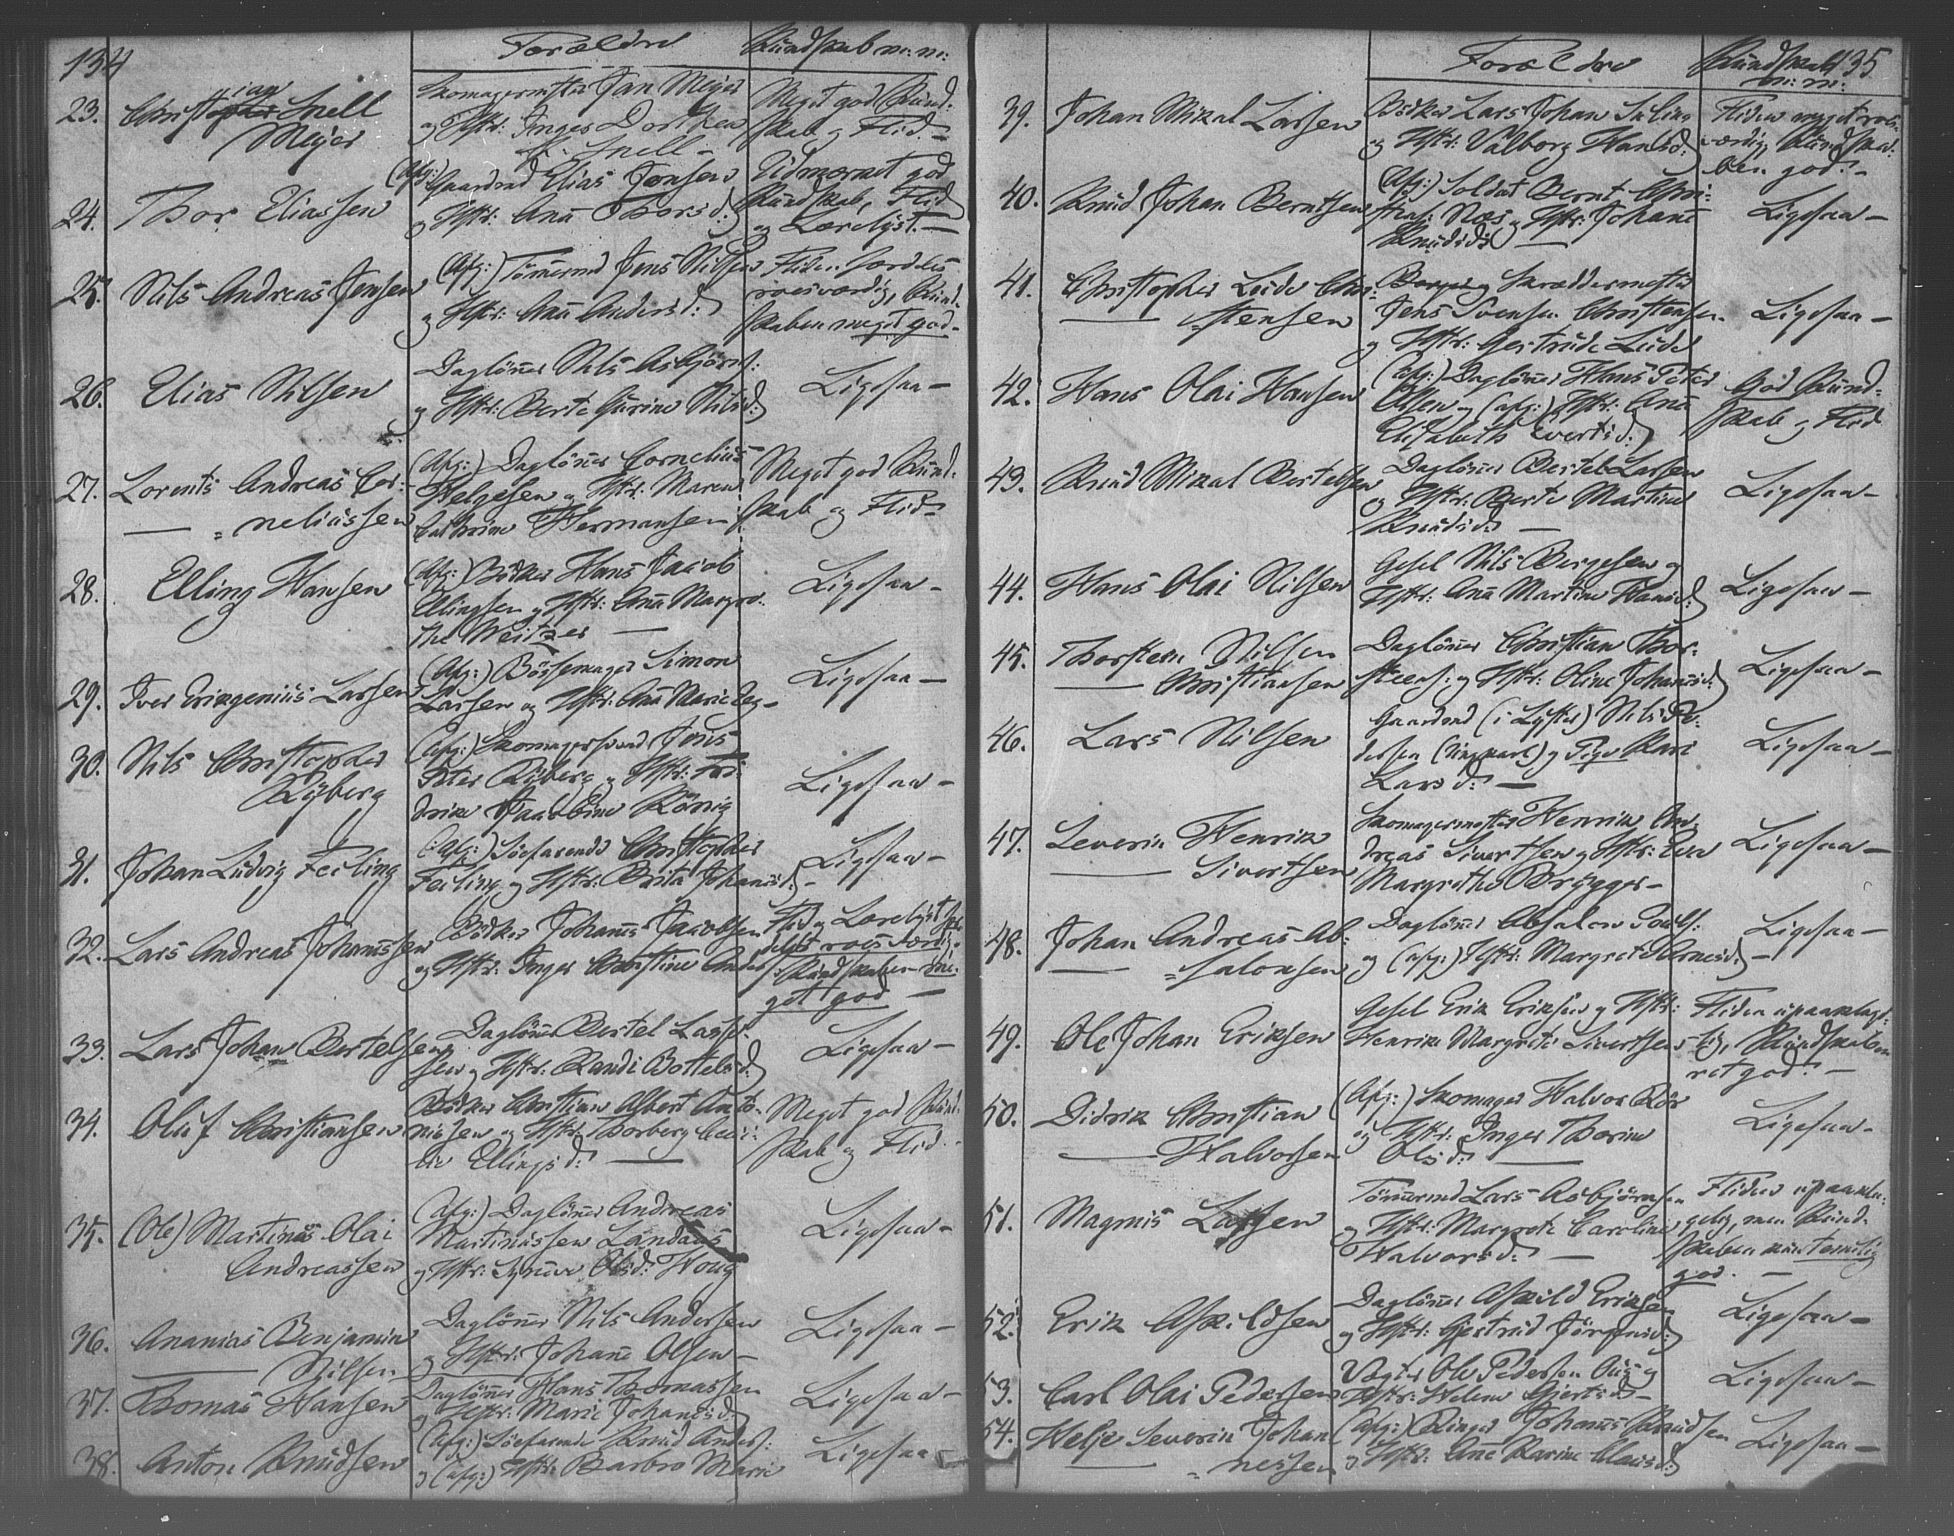 134
Forældre
Kundskab m: m:
23. Christopher ian Snell
Meyer
Skomagermester Jan Meyer
og Hstr: Inger Dorthea
f. Snell –
Meget god Kund-
skab og Flid. –
24. Thor Eliassen
(Afg:) Gaardmd Elias Jonsen
og Hstr: Ana Thorsd:
Udmærket god
Kundskab, Flid
og Lærelyst. –
25. Nils Andreas Jensen
(Afg:) Tömmermd Jens Nilsen
og Hstr: Ana Andersd:
Fliden særdeles
roesværdig, Kund-
skaben meget god –
26. Elias Nilsen
Daglönner Nils Asbjörns:
og Hstr: Berte Gurine Nilsd:
Ligesaa –
27. Lorents Andreas Cor-
– = neliussen
(Afg:) Daglönner Cornelius
Helgesen og Hstr: Maren
Cathrine Hermansen
Meget god Kund-
skab og Flid –
28. Elling Hansen
(Afg:) Bödker Hans Jacob
Ellingsen og Hstr: Ana Margre-
the Weitzer –
Ligesaa –
29. Iver Erigenius Larsen
(Afg:) Bössemager Simon
Larsen og Hstr: Ana Marie
Ligesaa –
30. Nils Christopher
Ryberg
(Afg:) Skomagersvend Jens
Peter Ryberg og Hstr: Fre-
drike Jacobine König
Ligesaa –
31. Johan Ludvig Feiling
(Afg:) Söefarende Christopher
Feiling og Hstr: Brita Johansd: –
Ligesaa –
32. Lars Andreas Johannssen
Bödker Johannes Jacobsen
og Hstr: Inger Christine Anders
Flid og Lærelyst
roesværdig
Kundskaben me-
get god –
33. Lars Johan Bertelsen
Daglönner Bertel Lasse-
sen og Hstr: Randi Bottelsd:
Ligesaa –
34. Oluf Christiansen
Bödker Christian Albert Anto-
nissen og Hstr: Thorberg Ceci-
lie Ellingsd: –
Meget god Kund-
skab og Flid. –
35. (Ole) Martinus Olai
Andreassen
(Afg:) Daglönner Andreas
Martinussen Landaas
og Hstr: Synneve Olsd: Houg
Ligesaa –
36. Ananias Benjamin
– Nilsen
Daglönner Nils Andersen
og Hstr: Johane Olsen –
Ligesaa –
37. Thomas Hansen
Daglönner Hans Thomassen
og Hstr: Marie Johannesd:
Ligesaa –
38. Anton Knudsen
(Afg:) Söefarende Knud Anders:
og (afg:) Hstr: Barbro Marie
Ligesaa
135
Forældre
Kundskab
m: m:
39. Johan Mikal Larsen
Bödker Lars Johan
og Hstr: Valborg Hansd:
Fliden meget roes-
værdig, Kundska-
ben god. –
40. Knud Johan Berntsen
(Afg:) Soldat Bernt Chri-
stians: Næs og Hstr: Johane
Knudsd: –
Ligesaa –
41. Christopher Leide Chri-
– = stensen
Borger og Skræddermester
Jens Svensen Christensen
og Hstr: Gertrude Leide
Ligesaa –
42. Hans Olai Hansen
(Afg:) Daglönner Hans Peter
Olsen og (afg:) Hstr: Ana
Elisabeth Evertsd:
God Kund-
skab og Flid
43. Knud Mikal Bertelsen
Daglönner Bertel Larsen
og Hstr: Berte Martine
Knudsd: –
Ligesaa –
44. Hans Olai Nilsen
Gesel Nils Børgesen og
Hstr: Ana Martine Hansd:
Ligesaa –
45. Thorsten Nilsen
– Christiansen
Daglönner Christian Thor-
steens: og Hstr: Oline Johannesd:
Ligesaa –
46. Lars Nilsen
Gaardmd (i Lyster) Nils Pe-
dersen (Ungkarl) og Pige Kari
Larsd: –
Ligesaa –
47. Severin Henrik
– Sivertsen
Skomagermester Henrik An-
dreas Sivertsen og Hstr: Eva
Margrethe Brygger –
Ligesaa –
48. Johan Andreas Ab-
– = salonsen
Daglönner Absalon Pouls:
og (afg:) Hstr: Margrete Arnesd: –
Ligesaa –
49. Ole Johan Eriksen
Gesel Erik Eriksen og Hstr:
Henrike Margrete Sivertsen
Fliden upaaklage-
lig, Kundskaben
ret god. –
50. Didrik Christian
– Halvorsen
(Afg:) Skomager Halvor Rör
og Hstr: Inger Thorine
Olsd: –
Ligesaa –
51. Magnus Larsen
Tömmermd Lars Asbjörnsen
og Hstr: Margrete Caroline
Halvorsd: –
Fliden upaakla-
gelig, men Kund-
skaben kun temelig
god. –
52. Erik Askildsen
Daglönner Askild Eriksen
og Hstr: Gjertrud Jörgensd:
Ligesaa –
53. Carl Olai Pedersen
Vægter Ole Pedersen og
Hstr: Helene Gjertsd: –
Ligesaa –
54. Helje Severin Johan-
– = nessen
(Afg:) Ringer Johannes Knudsen
og Hstr: Ane Karine Clausd:
Ligesaa –